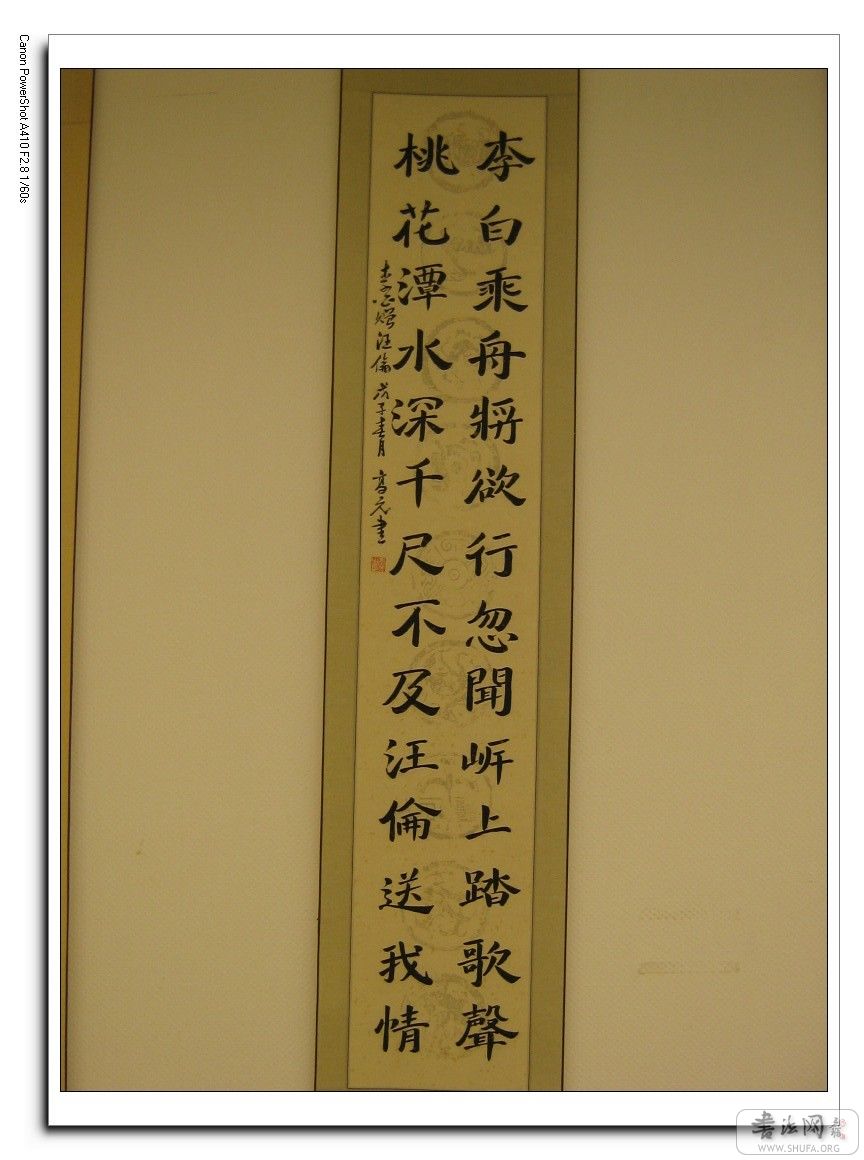 李白乘舟將欲行忽聞岍上踏歌聲
桃花潭水深千尺不及汪倫送我情
李白贈汪倫 戊子春月 高元書
Canon PowerShot A410 F2.8 1/60s
书法网
WWW.SHUFA.ORG